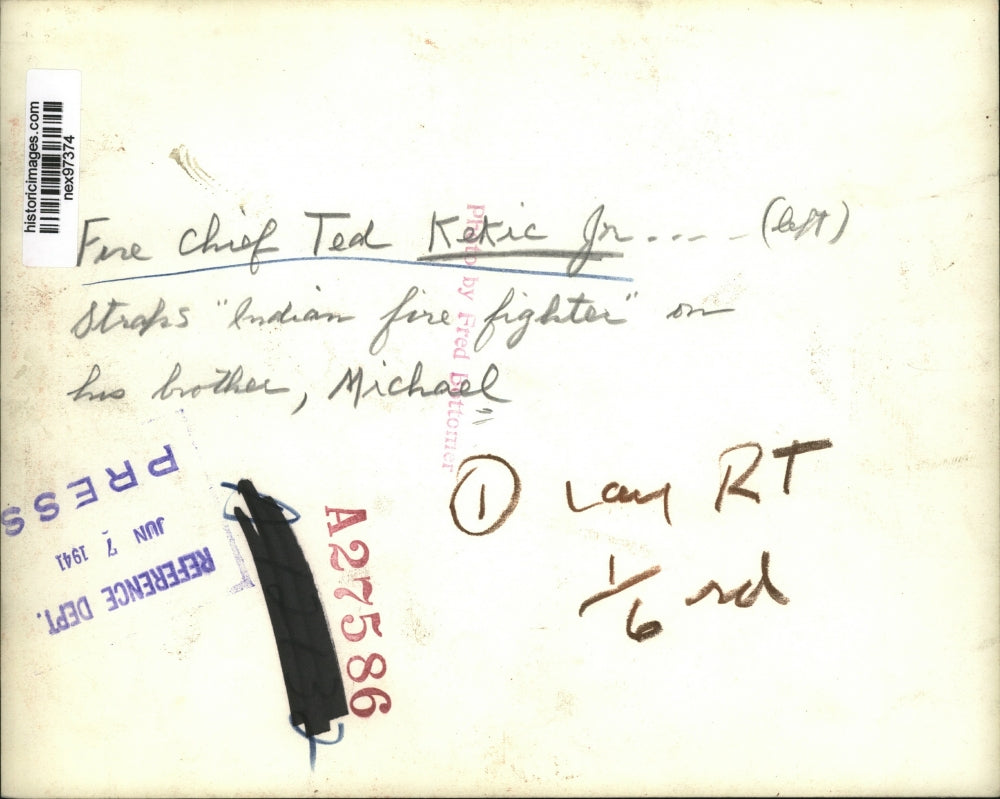 historicimages.com
nex97374
Fire Chief Ted Kekic Jr.... (left)
Straps "Indian fire fighter" on
his brother, Michael
Photo by Fred Bottomer
PRESS
JUN 7 1941
REFERENCE DEPT.
A27586
1 RT
1/6 rd